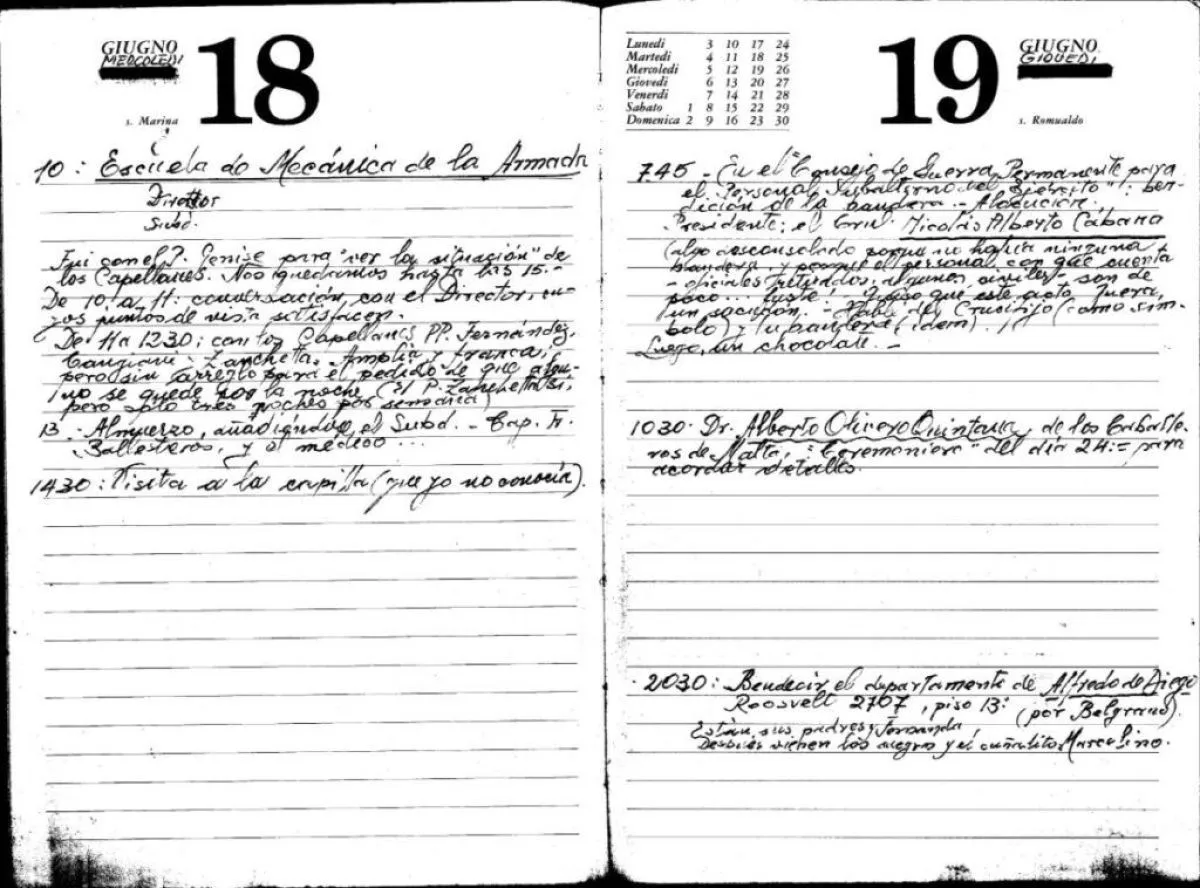 GIUGNO
MERCOLEDI
18
s. Marina
10: Escuela de Mecánica de la Armada
Director
Subd.
Fui con el P. Genise para "ver la situación" de
los Capellanes. Nos quedamos hasta las 15.-
De 10 a 11: conversación con el Director, cu-
yos puntos de vista satisfacen.
De 11 a 1230: con los Capellanes PP. Fernández,
Cangiani - Zancheta. Amplia y franca,
pero sin arreglo para el pedido de que algu-
no se quede por la noche (el P. Zancheta sí,
pero sólo tres noches por semana)
13.- Almuerzo, añadiéndose el Subd. - Cap. Fr.
Ballesteros, y el médico ...
1430: Visita a la capilla (que yo no conocía).
Lunedì 3 10 17 24
Martedì 4 11 18 25
Mercoledì 5 12 19 26
Giovedì 6 13 20 27
Venerdì 7 14 21 28
Sabato 1 8 15 22 29
Domenica 2 9 16 23 30
19
GIUGNO
GIOVEDI
s. Romualdo
745 - En el "Consejo de Guerra Permanente para
el Personal Subalterno del Ejército": ben-
dición de la bandera. - Alocución.
Presidente: el Crnl. Nicolás Alberto Cábana
(algo desconsolado porque no había ninguna
bandera, y porque el personal con que cuenta
- oficiales retirados, algunos civiles - son de
poco ... fuste. Quiso que este acto fuera
un sacudón. - Hablé del Crucifijo (como sím-
bolo) y la bandera (idem).
Luego, un chocolate. -
1030. Dr. Alberto Olivero Quintana, de los Caballe-
ros de Malta, "Ceremoniero" del día 24:= para
acordar detalles.
2030: Bendecir el departamento de Alfredo de Diego
Roosvelt 2707, piso 13: (por Belgrano).
Están sus padres y Fernanda
Después vienen los suegros y el cuñadito Marcelino.